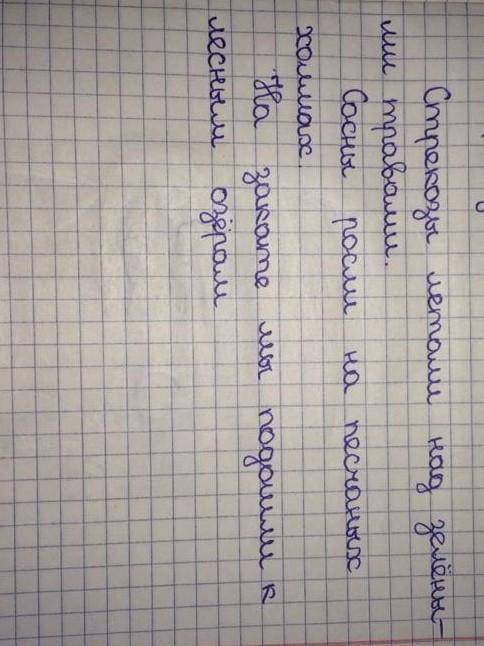 Стрекозы летали над зелёны-
ми травами.
Сосны росли на песчаных
холмах.
На закате мы подошли к
лесным озёрам